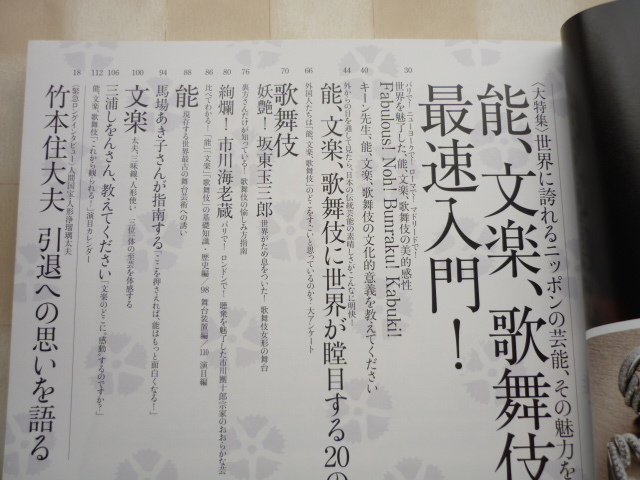 〈大特集〉世界に誇れるニッポンの芸能、その魅力を
能、文楽、歌舞伎
最速入門！
パリで！ ニューヨークで！ ローマで！ マドリードで！
30 世界を魅了した、能、文楽、歌舞伎の美的感性
Fabulous! Noh! Bunraku! Kabuki!
40 キーン先生、能、文楽、歌舞伎の文化的意義を教えてください
44 外からの目を通して見たら、日本の伝統芸能の素晴しさがこんなに明快！
能、文楽、歌舞伎に世界が瞠目する20の
66 外国人たちは「能、文楽、歌舞伎」のどこをすごいと思っているのか？ 大アンケート
70 歌舞伎
妖艶！ 坂東玉三郎 世界がため息をついた！ 歌舞伎女形の舞台
76 裏方さんだけが知っている 歌舞伎の愉しみ方指南
80 絢爛！ 市川海老蔵 パリで！ ロンドンで！ 聴衆を魅了した市川團十郎宗家のおおらかな芸
86 比べてわかる！「能」「文楽」「歌舞伎」の基礎知識・歴史編 98 舞台装置編／110 演目編
88 能 現存する世界最古の舞台芸術への誘い
94 馬場あき子さんが指南する「ここを押さえれば、能はもっと面白くなる！」
100 文楽 太夫、三味線、人形使い 三位一体の至芸を体感する
106 三浦しをんさん、教えてください「文楽のどこに〝感動〟するのですか？」
112 能、文楽、歌舞伎「これから観られる！」演目カレンダー
18 〈緊急ロングインタビュー〉人間国宝・人形浄瑠璃太夫
竹本住大夫 引退への思いを語る